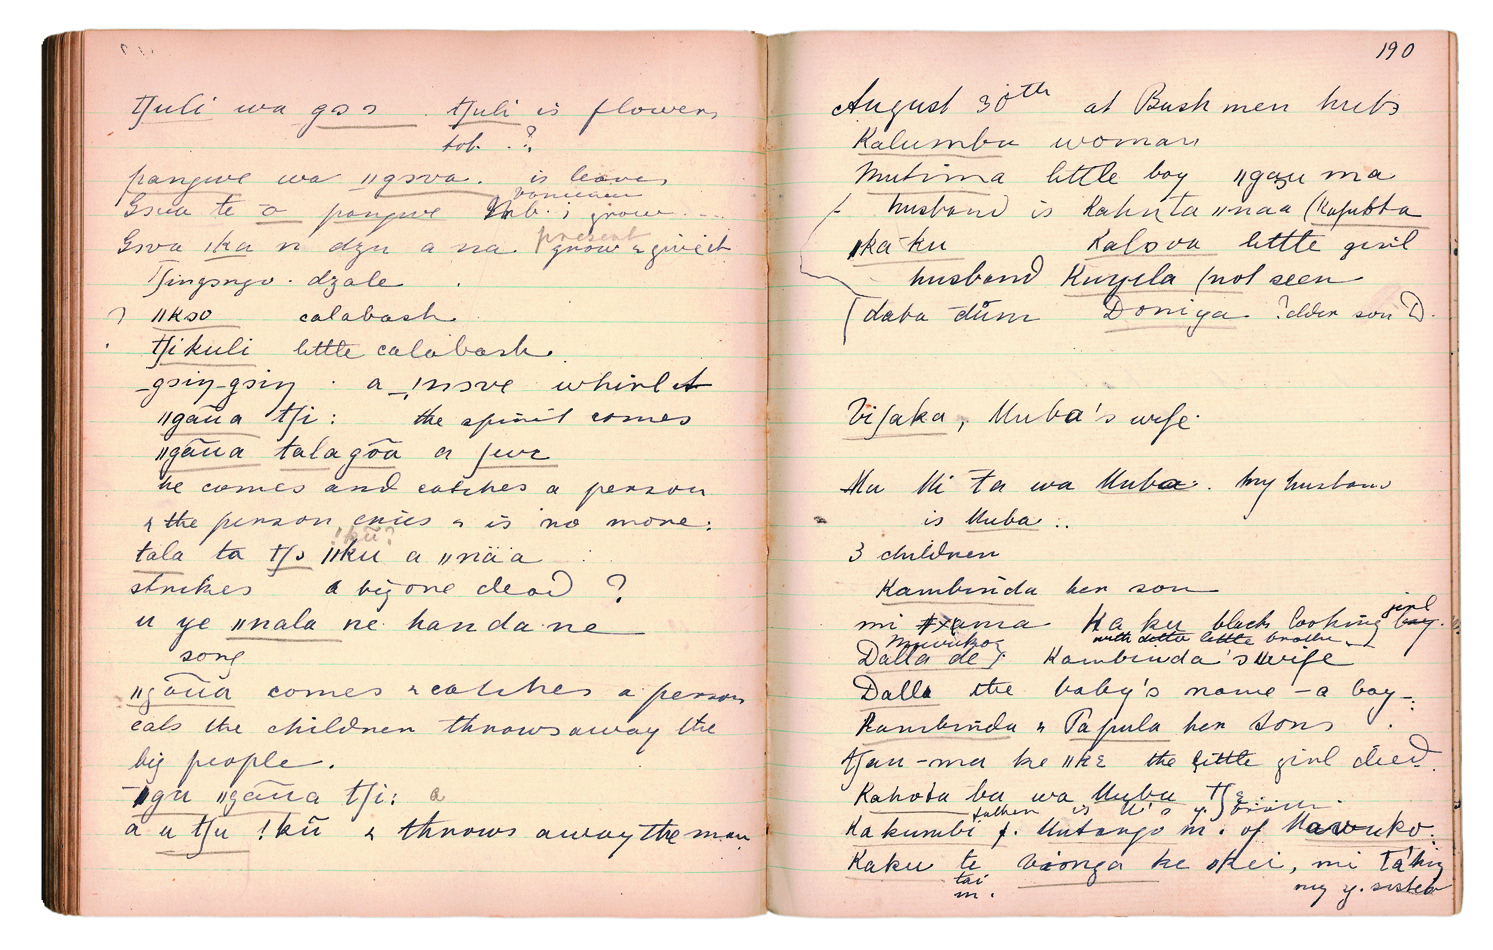 tʃuli wa gɔɔ . tʃuli is flowers
tob. ?
pangwe wa ǁgɔva. is leaves
Gɔva te ɔ pangwe Tob. ; grow
Gɔva ǁka n dzu a na present grow & give it
Tʃingɔngo . dzale .
? ǁkɔo calabash
tʃikuli little calabash.
gɔiŋ-gɔiŋ . a !nɔve whirl it
ǁgãua tʃi : the spirit comes
ǁgãua talagõa a ʃwɛ
he comes and catches a person
& the person cries & is no more :
!kũ?
tala ta tʃɔ ǁkũ a ǁnäa
strikes a big one dead ?
u ye ǁnala ne handa ne
song
ǁgãua comes & catches a person
eats the children throws away the
big people .
ǀgu ǁgãua tʃi: a
a u tʃu !kũ & throws away the man
190
August 30th at Bushmen huts
Kalumbu woman
Mutima little boy ǁgau ma
husband is Kahuta ǁnaa (Kafubta
ǁka ku Kalova little girl
husband Kuyela (not seen
(daba dũm Doniya ? elder son D.
Viʃaka, Muba's wife.
Mu Mi ta wa Muba. My husband
is Muba ..
3 children
Kambinda her son
mi ama Ka ku black looking girl boy.
with ditto little brother
Dalla de Kambinda's wife
Dalla the baby's name – a boy –
Kambinda & Papula her sons .
tʃau-ma ke ǁkɛ the little girl died.
Kahota ba wa Muba tʃɛ
father is M's y. brother.
Kakumbi f. Mutango m. of Mawuko.
Kaku te vionga ke ǁkei, mi ta'hiŋ
tai my y. sister
m.